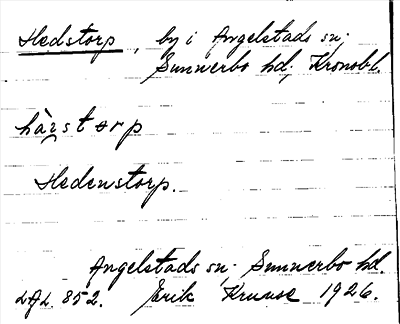 Hedstorp, by i Angelstads sn;
Sunnerbo hd; Kronobl.
hàʒstorp
Hedenstorp.
Angelstads sn; Sunnerbo hd.
LAL 852. Erik Kruuse 1926.